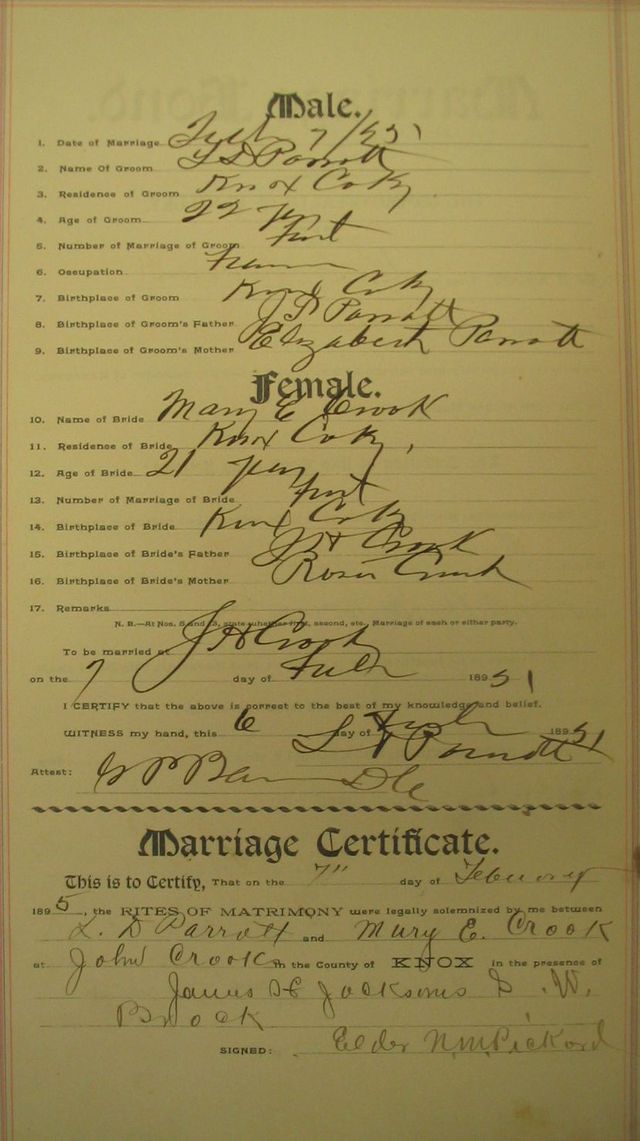 Male.
1. Date of Marriage Feb 7/95
2. Name Of Groom L D Parrott
3. Residence of Groom Knox Co Ky
4. Age of Groom 22 yrs
5. Number of Marriage of Groom First
6. Occupation Farmer
7. Birthplace of Groom Knox Co Ky
8. Birthplace of Groom's Father J D Parrott
9. Birthplace of Groom's Mother Elizabeth Parrott
Female.
10. Name of Bride Mary E Crook
11. Residence of Bride Knox Co Ky,
12. Age of Bride 21 years
13. Number of Marriage of Bride First
14. Birthplace of Bride Knox Co Ky
15. Birthplace of Bride's Father J H Crook
16. Birthplace of Bride's Mother Crook
17. Remarks
N. B.—At Nos. 5 and 13, state whether first, second, etc. Marriage of each or either party.
To be married at J H Crook
on the 7 day of Feb 1895
I CERTIFY that the above is correct to the best of my knowledge and belief.
WITNESS my hand, this 6 day of Feb 1895
L D Parrott
Attest: D C
Marriage Certificate.
This is to Certify, That on the 7" day of February
1895, the RITES OF MATRIMONY were legally solemnized by me between
L. D Parrott and Mary E. Crook
at John Crooks in the County of KNOX in the presence of
James H Jacksons W.
Brock
SIGNED: Elder N.M. Pickard